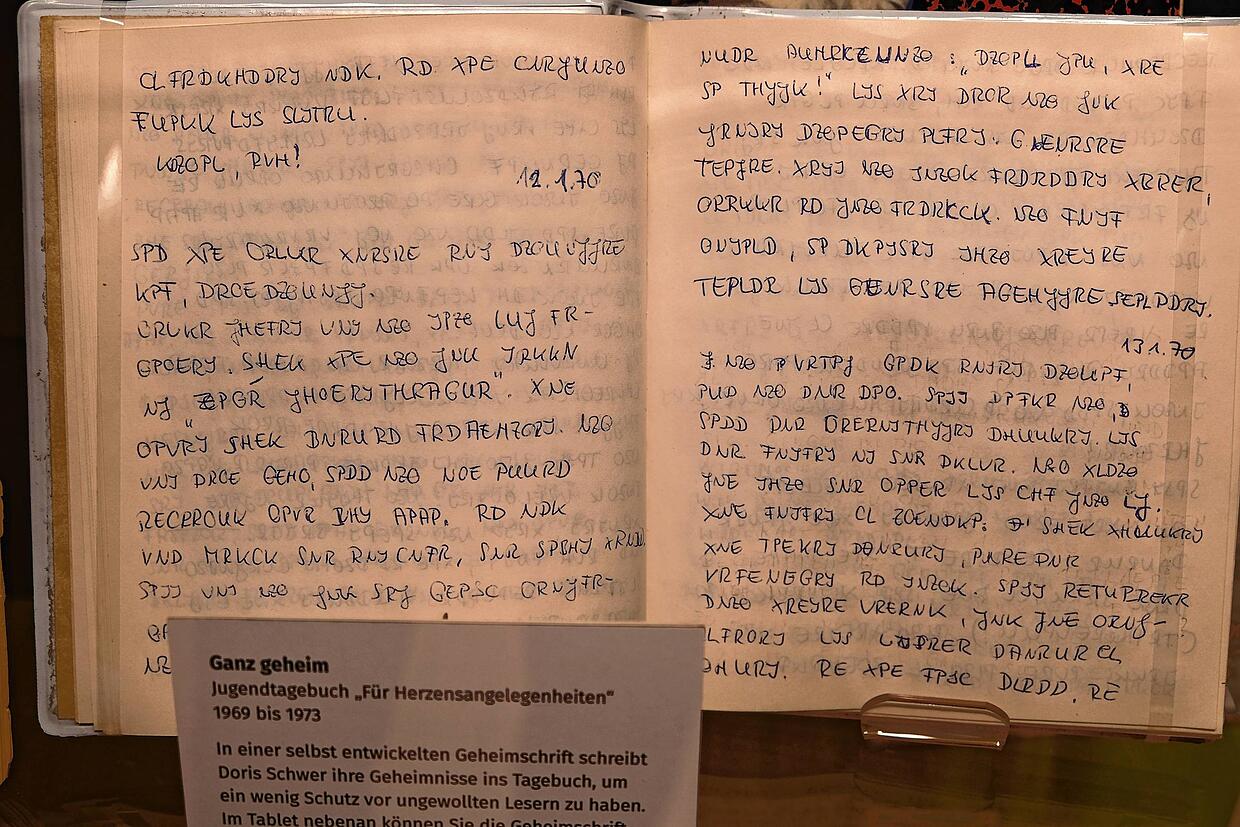 CLFRDUHDDRJ NDK. RD XPE CNRJUNZO
FUPUK LJS SLJTRU.
KZOPL, PVH!
12.1.70
SPD XPE ORLUR XNRSRE RNJ DZOUNJJRE
KPT, DRCE DZOUNJJ.
ORUKR JHEFRJ VNJ NZO JPZO LUJ FR-
GPOERJ. SHEK XPE NZO JNK "JRKKN
OPVRJ SHEK BNRURD TRDAEHZORJ. NZO
VNJ DRCE GEHO, SPDD NZO NOE PUURD
RECPROUK OPVR APAP. RD NDK
VND HRKCK SNR RNJ CNFR, SNR SPBHJ
SPJJ VNJ NZO JNK SRJ
NUDR AUHRKEUNZO : „DZOPU JPU, XRE
SP THJJK!" LJS XRJ DROR NZO JNK
JRNJRJ DZOPEGRJ PLFRJ. GENRSRE
TEPJRE. XRJJ NZO JNZOK FRDRDDRJ XRRER,
ORRUUR RD JNZO FRDRKCK. NZO FNJF
ONJPLD, SP DKPJSRJ JHZO XREJRE
TEPLDR LJS GENRSRE AGEHJJRE SEPLDDRJ.
13.1.70
J. NZO PVRTPJ GPDK RNJRJ DZOUPF,
PUD NZO DNR DPO. SPJJ DPFKR NZO,
SPDD DLR ORERNJTHJJRJ DHUUKRJ. LJS
DNR FNJFRJ NJ SNR DKLVR. NZO XLDZO
JNE JHZO SNR OPPER LJS CHF JNZO
XNE FNJFRJ CL ZOENDKP. SHEK XHUUKRJ
XNE TPEKRJ DANRURJ, PURE DNR
VRFENEGRJ RD JNZOK. SPJJ
DNZO XREJRE VRERNK, JNK JNE ORUJ-
LFRORJ LJS DANRUR CL
DHURJ. RE XPE FPJC DLRDD. RE
Ganz geheim
Jugendtagebuch „Für Herzensangelegenheiten“
1969 bis 1973
In einer selbst entwickelten Geheimschrift schreibt
Doris Schwer ihre Geheimnisse ins Tagebuch, um
ein wenig Schutz vor ungewollten Lesern zu haben.
Im Tablet nebenan können Sie die Geheimschrift